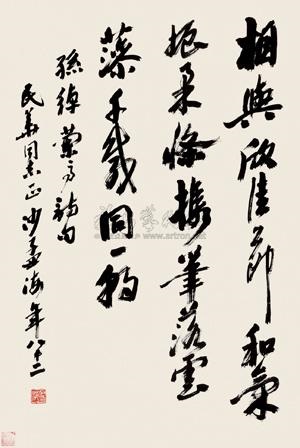 相與欣佳節和氣
振柔條攜筆落雲
藻千載同一朝
孫綽蘭亭詩句
民華同志正沙孟海年八十二
www.artron.net